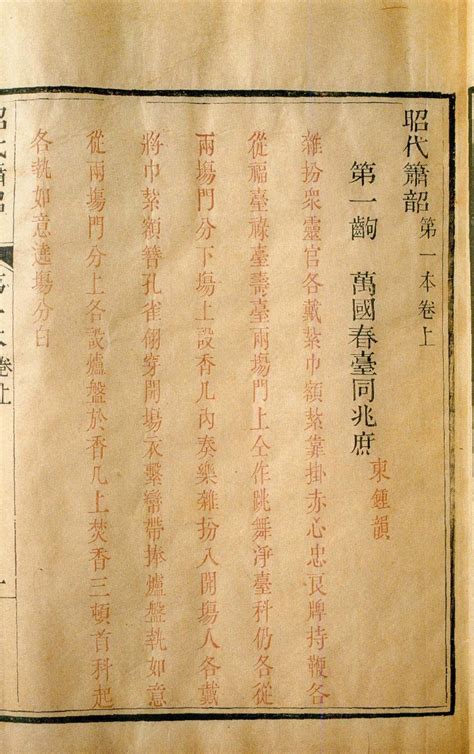 昭代簫韶 第一本卷上
第一齣 萬國春臺同兆庶
東鍾韻
雜扮衆靈官各戴紮巾額紮靠掛赤心忠良牌持鞭各
從福臺祿臺壽臺兩塲門上仝作跳舞淨臺科仍各從
兩塲門分下塲上設香几內奏樂雜扮八開塲人各戴
將巾紮額簪孔雀翎穿開塲衣繫鸞帶捧爐盤執如意
從兩塲門分上各設爐盤於香几上焚香三頓首科起
各執如意遶塲分白
昭代簫韶 第一本卷上